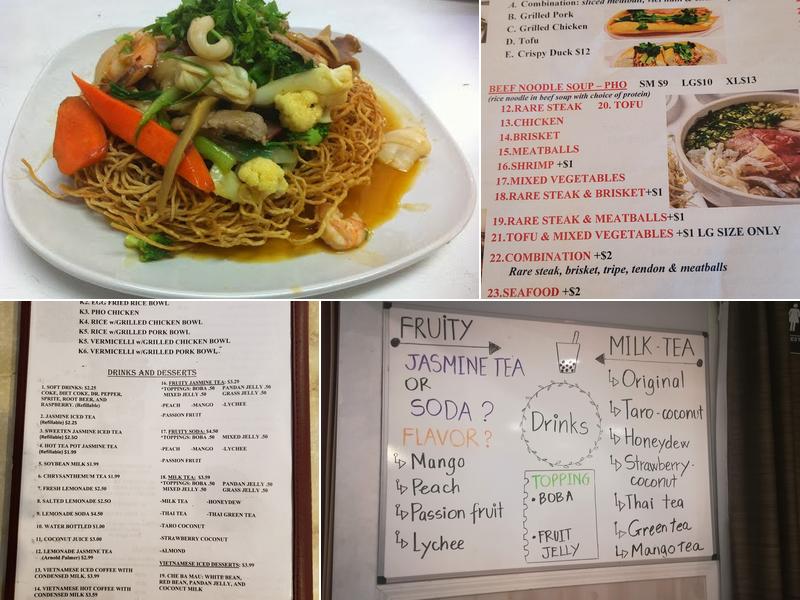 A. Combination: sliced meatball,
B. Grilled Pork
C. Grilled Chicken
D. Tofu
E. Crispy Duck $12
BEEF NOODLE SOUP – PHO SM $9 LG$10 XL$13
(rice noodle in beef soup with choice of protein)
12.RARE STEAK 20. TOFU
13.CHICKEN
14.BRISKET
15.MEATBALLS
16.SHRIMP +$1
17.MIXED VEGETABLES
18.RARE STEAK & BRISKET+$1
19.RARE STEAK & MEATBALLS+$1
21.TOFU & MIXED VEGETABLES +$1 LG SIZE ONLY
22.COMBINATION +$2
Rare steak, brisket, tripe, tendon & meatballs
23.SEAFOOD +$2
K2. EGG FRIED RICE BOWL
K3. PHO CHICKEN
K4. RICE w/GRILLED CHICKEN BOWL
K5. RICE w/GRILLED PORK BOWL
K5. VERMICELLI w/GRILLED CHICKEN BOWL
K6. VERMICELLI w/GRILLED PORK BOWL
DRINKS AND DESSERTS
1. SOFT DRINKS: $2.25
COKE, DIET COKE, DR. PEPPER,
SPRITE, ROOT BEER, AND
RASPBERRY. (Refillable)
2. JASMINE ICED TEA
(Refillable) $2.25
3. SWEETEN JASMINE ICED TEA
(Refillable) $2.50
4. HOT TEA POT JASMINE TEA
(Refillable) $1.99
5. SOYBEAN MILK $1.99
6. CHRYSANTHEMUM TEA $1.99
7. FRESH LEMONADE $2.50
8. SALTED LEMONADE $2.50
9. LEMONADE SODA $4.50
10. WATER BOTTLED $1.00
11. COCONUT JUICE $3.00
12. LEMONADE JASMINE TEA
(Arnold Palmer) $2.99
13. VIETNAMESE ICED COFFEE WITH
CONDENSED MILK. $3.99
14. VIETNAMESE HOT COFFEE WITH
CONDENSED MILK $3.59
16. FRUITY JASMINE TEA: $3.29
*TOPPINGS: BOBA .50 PANDAN JELLY .50
MIXED JELLY .50 GRASS JELLY .50
-PEACH -MANGO -LYCHEE
-PASSION FRUIT
17. FRUITY SODA: $4.50
*TOPPINGS: BOBA .50 MIXED JELLY .50
-PEACH -MANGO -LYCHEE
-PASSION FRUIT
18. MILK TEA: $3.59
*TOPPINGS: BOBA .50 PANDAN JELLY .50
MIXED JELLY .50 GRASS JELLY .50
-MILK TEA -HONEYDEW
-THAI TEA -THAI GREEN TEA
-TARO COCONUT
-STRAWBERRY COCONUT
-ALMOND
VIETNAMESE ICED DESSERTS: $3.99
19. CHE BA MAU: WHITE BEAN,
RED BEAN, PANDAN JELLY, AND
COCONUT MILK
FRUITY
JASMINE TEA
OR
SODA ?
FLAVOR ?
Mango
Peach
Passion fruit
Lychee
Drinks
TOPPING
• BOBA
• FRUIT
JELLY
MILK-TEA
Original
Taro-coconut
Honeydew
Strawberry-
coconut
Thai tea
Green tea
Mango tea